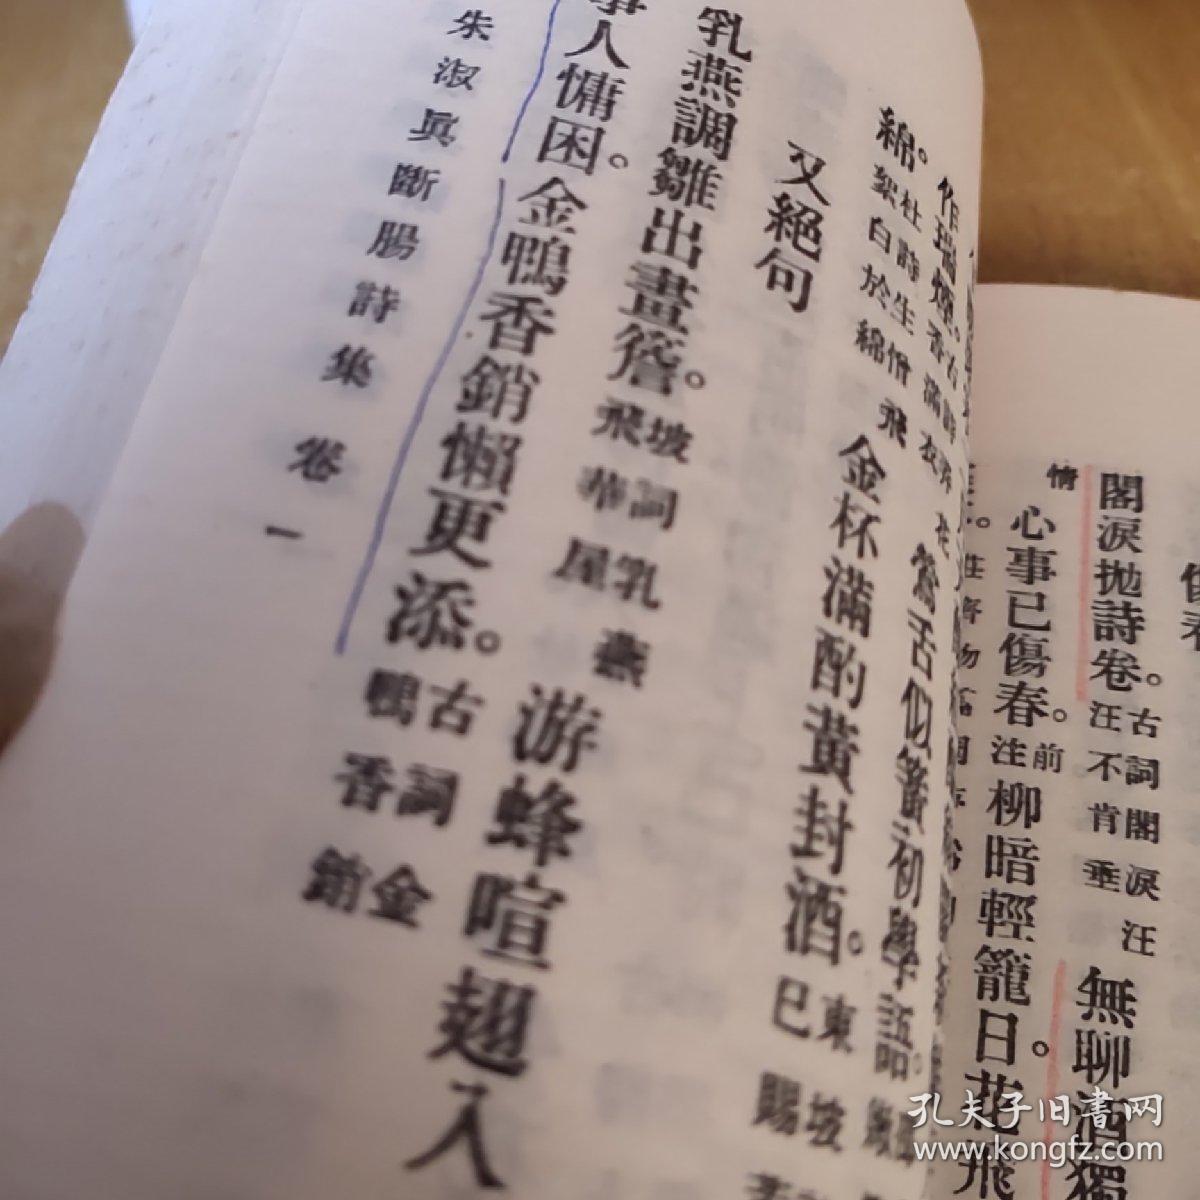 傷春
閣淚拋詩卷。古詞閣淚汪汪不肯垂
無聊酒獨
情
心事已傷春。前注
柳暗輕籠日。花飛
作瑞煙。
鶯舌似簧初學語。
綿。杜詩生憎
絮白於綿
飛
金杯滿酌黃封酒。東坡
巳賜
又絕句
乳燕調雛出畫簷。坡詞乳燕
飛華屋
游蜂喧翅入
事人慵困。
金鴨香銷懶更添。古詞金
鴨香銷
朱淑真斷腸詩集 卷一
孔夫子旧书网
www.kongfz.com